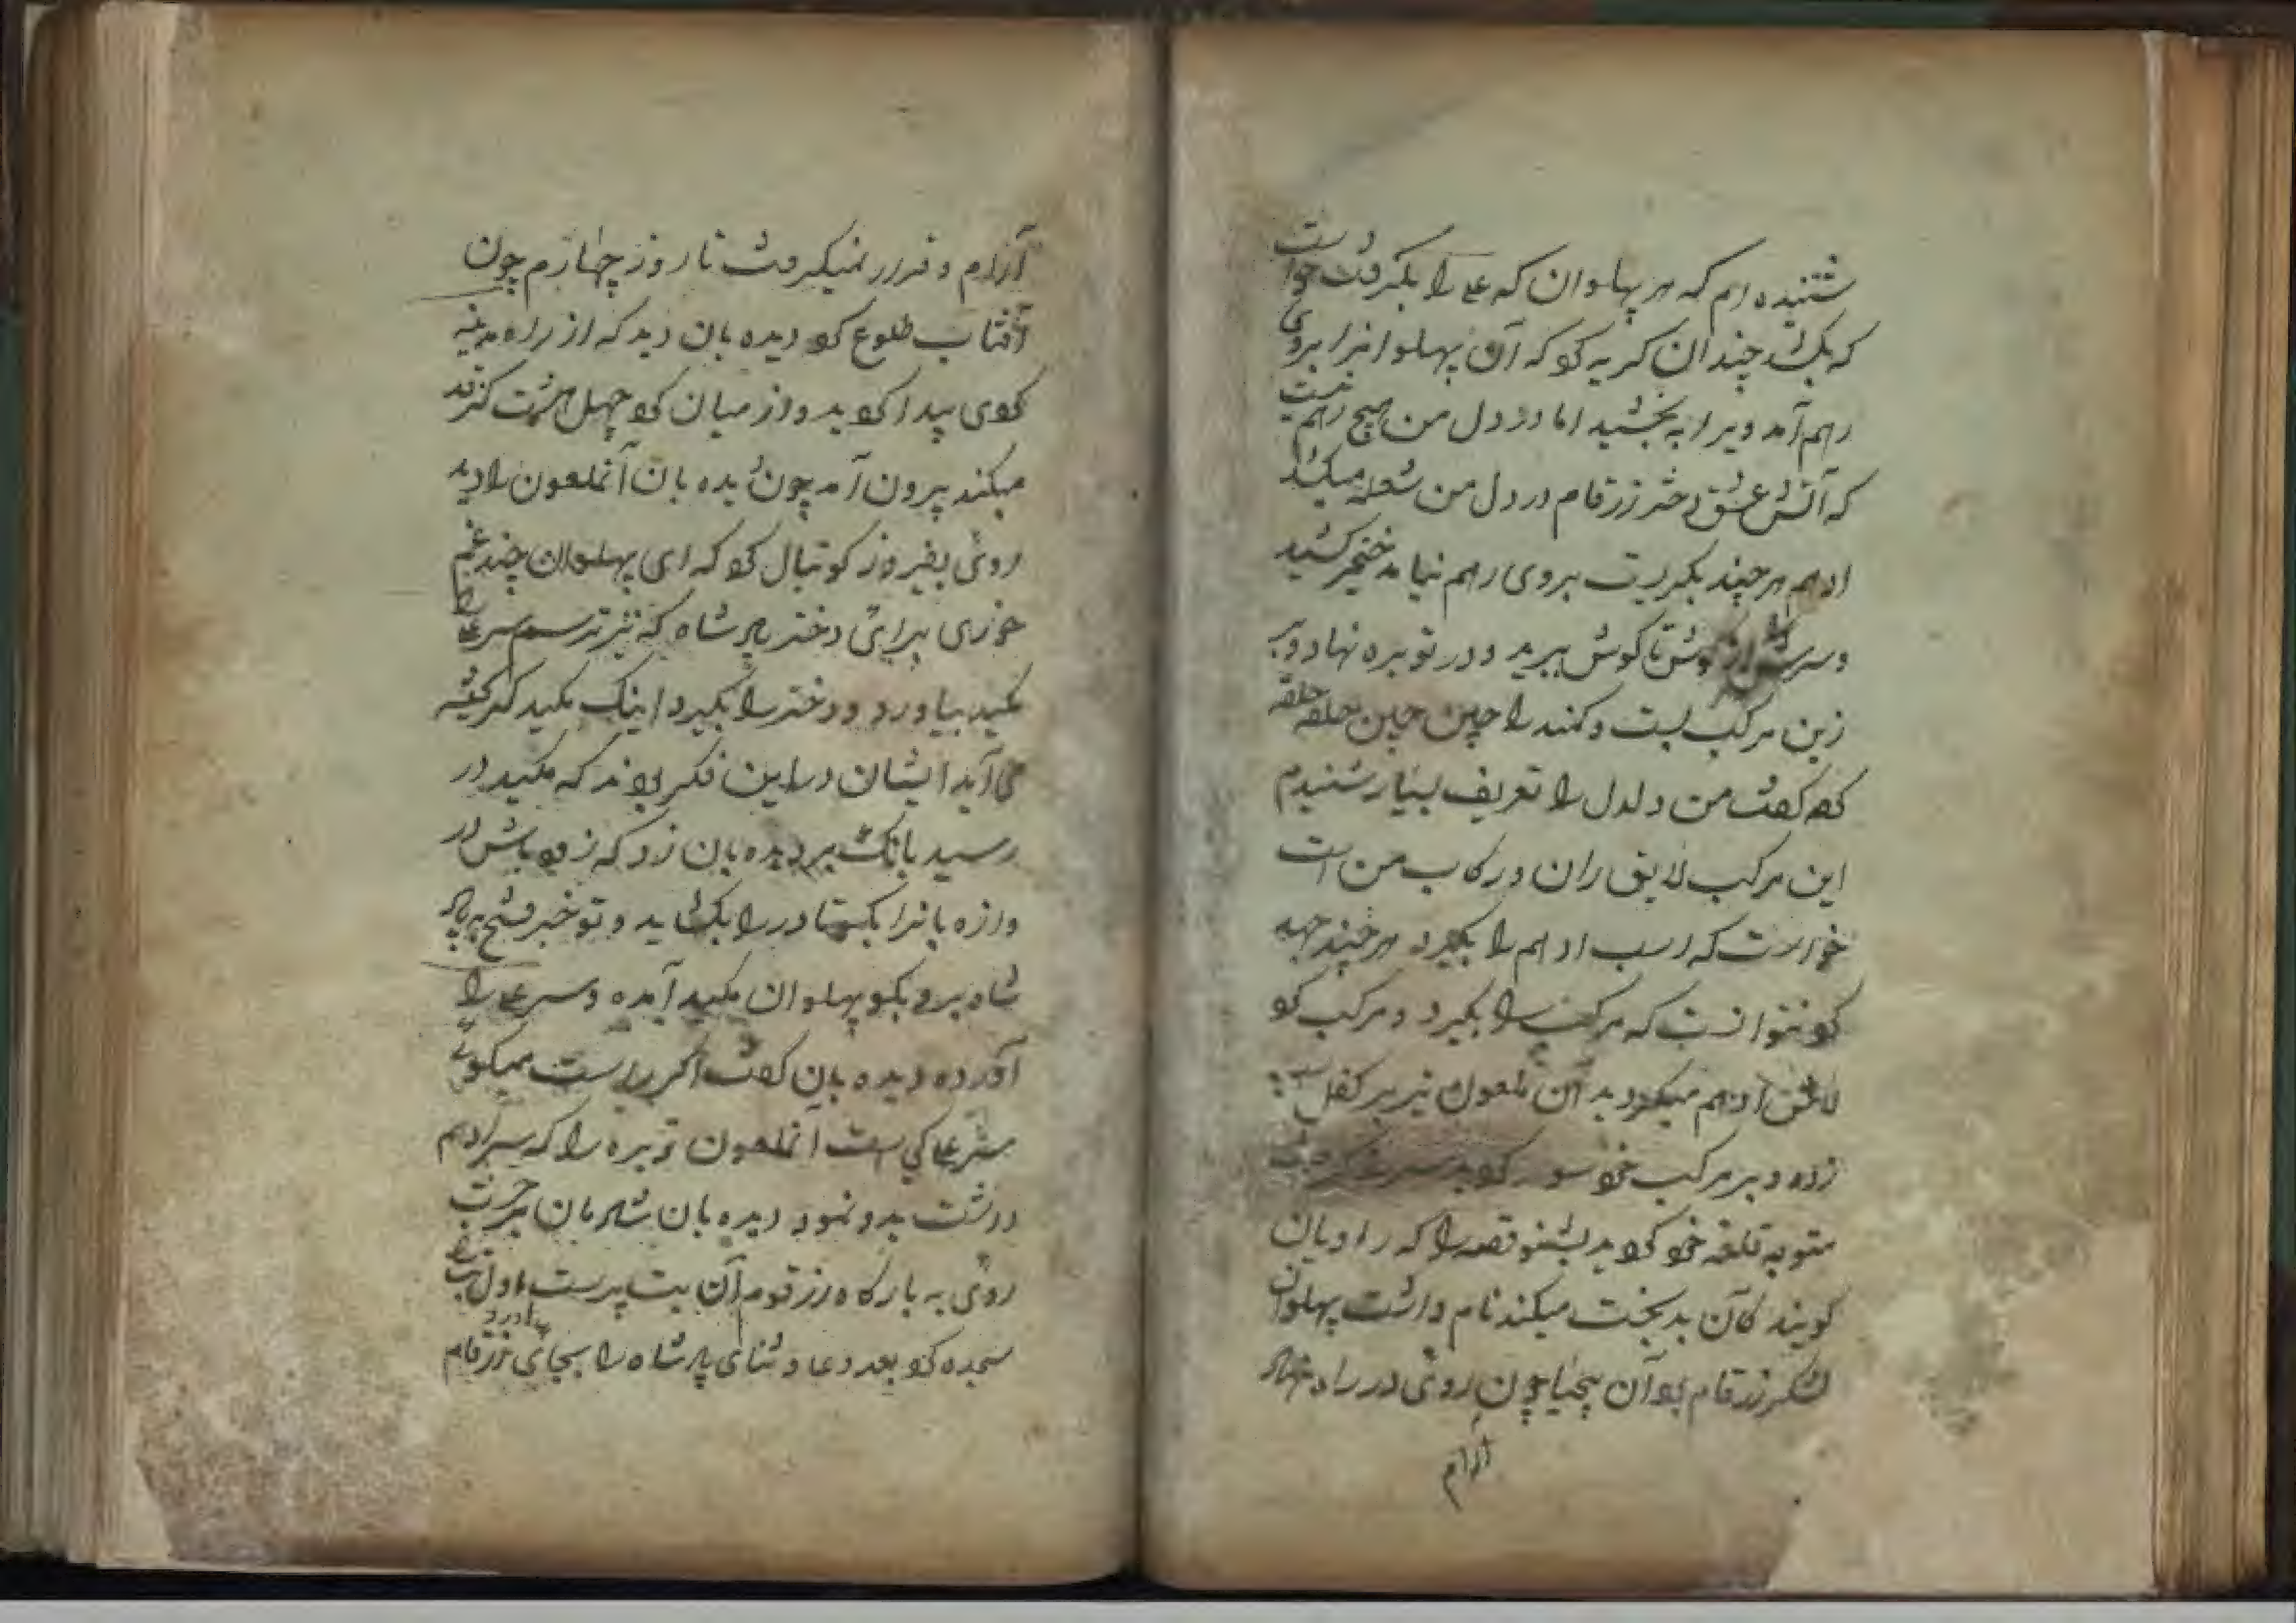 شنیده ام که هر پهلوان که علی را بگرفت خواست
که بکشد چندان کریه کو که آن پهلوانرا بروی
رهم آمد ویرا به بخشید اما در دل من هیچ رهم نیست
که آتش عشق دختر زرقام در دل من شعله میکشد
ادهم هر چند بکریت بروی رهم نیامد خنجر کشید
وسرش از کوش تا کوش ببرید و در توبره نهاد و بر
زین مرکب بست و کمند را چین چین حلقه حلقه
کو کفت من دلدل را تعریف بسیار شنیدم
این مرکب لایق ران و رکاب من است
خواست که اسب ادهم را بگیرد هر چند جهد
کو نتوانست که مرکب را بگیرد و مرکب کو
لاش ادهم میکردید آن ملعون تیر بر کفل
زده و بر مرکب خو سوار کوید سر
متوبه قلعه خو کوید بشنو قصه را که راویان
کویند کان بدبخت میکند نام داشت پهلوان
لشکر زرقام بو آن چون روی در راه نهاد
آرام
آرام و قرار نمیکرفت تا روز چهارم چون
آفتاب طلوع کو دیده بان دید که از راه مدینه
کوی پیدا کوید و از میان کو چهل هشت کز قد
میکند بیرون آمد چون دیده بان آنملعون را دید
روی بفیروز کوتبال کو که ای پهلوان چند غم
خوری برای دختر پادشاه که نتر ترسم سر علی را
مکید بیاورد و دختر را بگیرد اینک مکید کر کشته
می آید ایشان در این فکر بوند که مکید در
رسید بانک بر دیده بان زد که زو باش در
وازه بانرا بکو تا در را بکشاید و تو خبر فتح به پاد
شاه برو بکو پهلوان مکید آمده و سر علی را
آورده دیده بان کفت اکر راست میکوی
سر علی کی است آنملعون توبره را که سر ادهم
درشت بدو نمود دیده بان شادمان بر جست
روی به بارکاه زرقوم آن بت پرست اول
سجده کو بعد دعا و ثنای پادشاه را بجای آورد زرقام